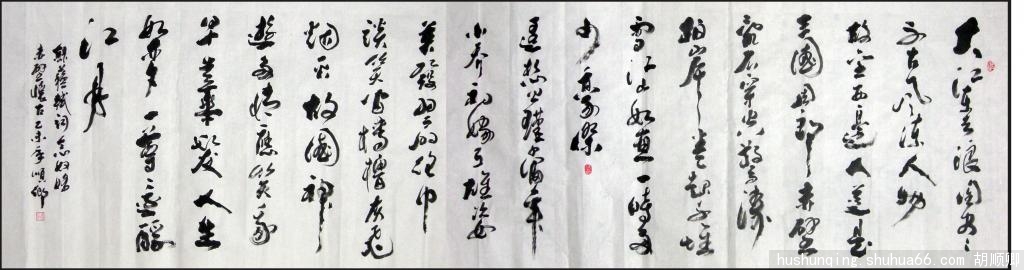 大江東去浪淘尽
千古风流人物
故垒西边人道是
三國周郎赤壁
乱石穿空惊涛
拍岸卷起千堆
雪江山如画一时多
少豪傑
遥想公瑾当年
小乔初嫁了雄姿
英發羽扇纶巾
谈笑间檣櫓灰飞
烟灭故國神
遊多情應笑我
早生華髮人生
如梦一尊還酹
江月
蘇軾詞念奴嬌
赤壁懷古乙未年順卿
hushunqing.shuhua66.com 胡顺卿